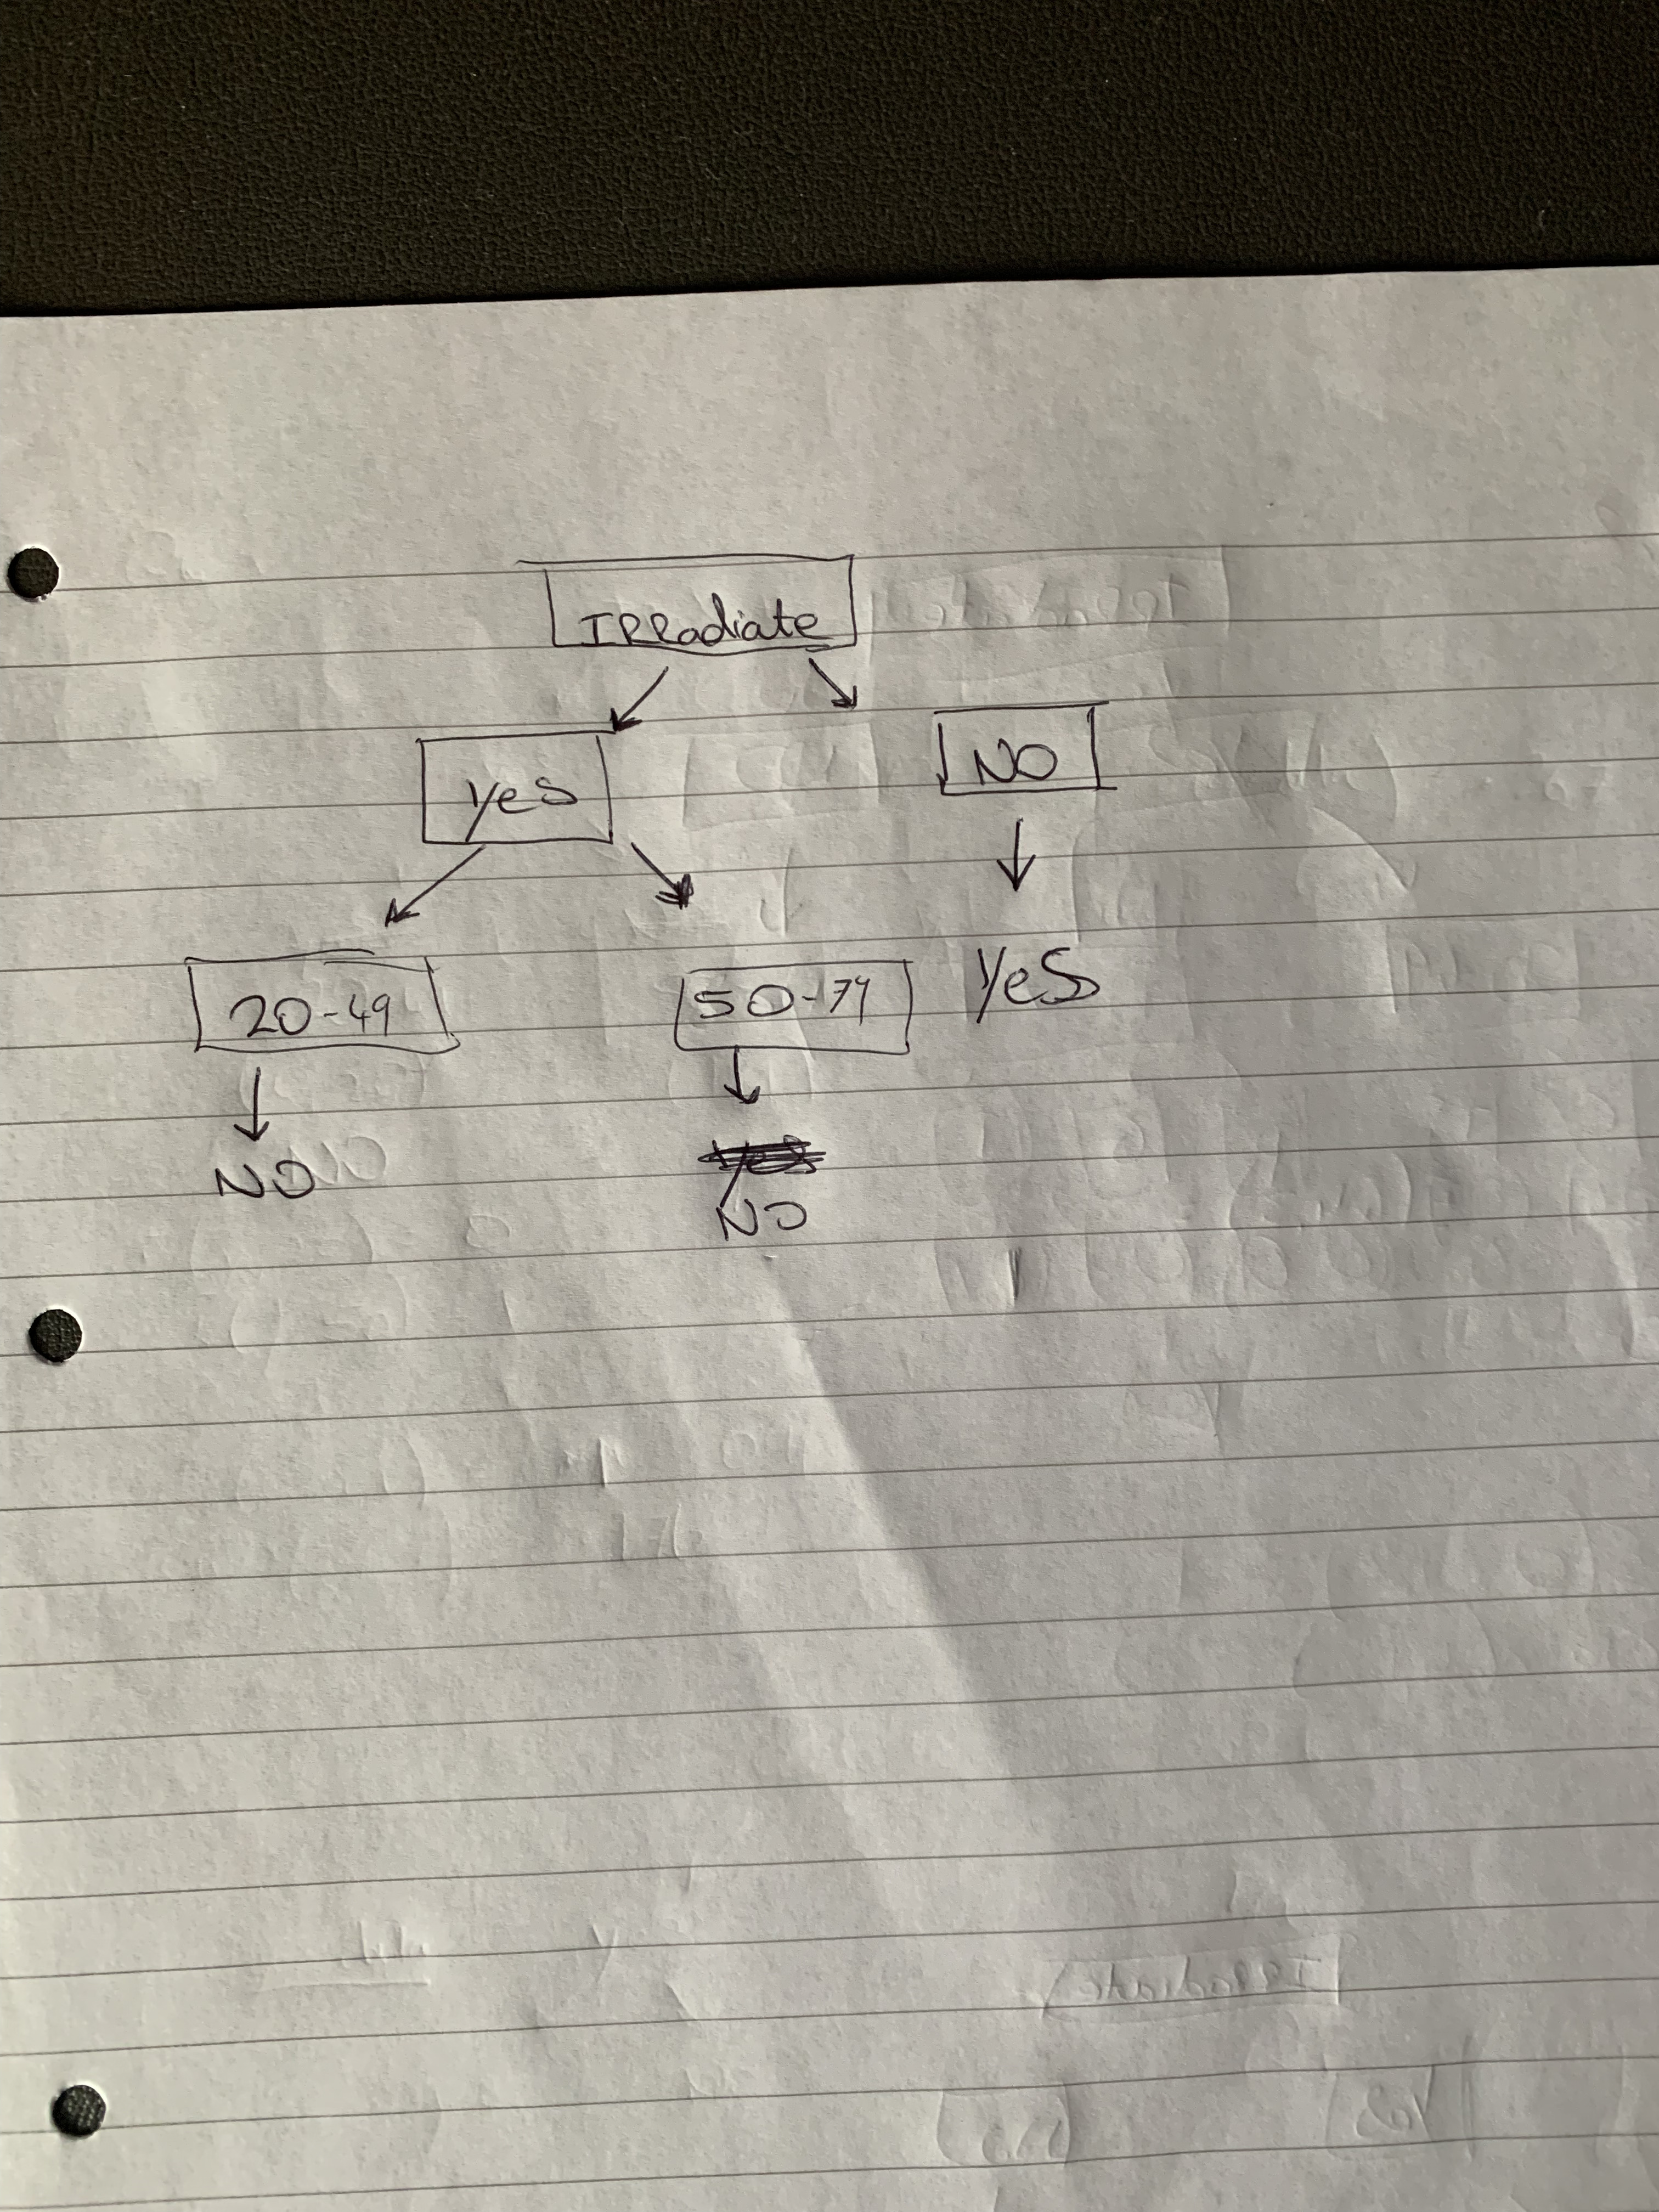 IRRadiate
yes NO
20-49 50-79 yes
NO
NO